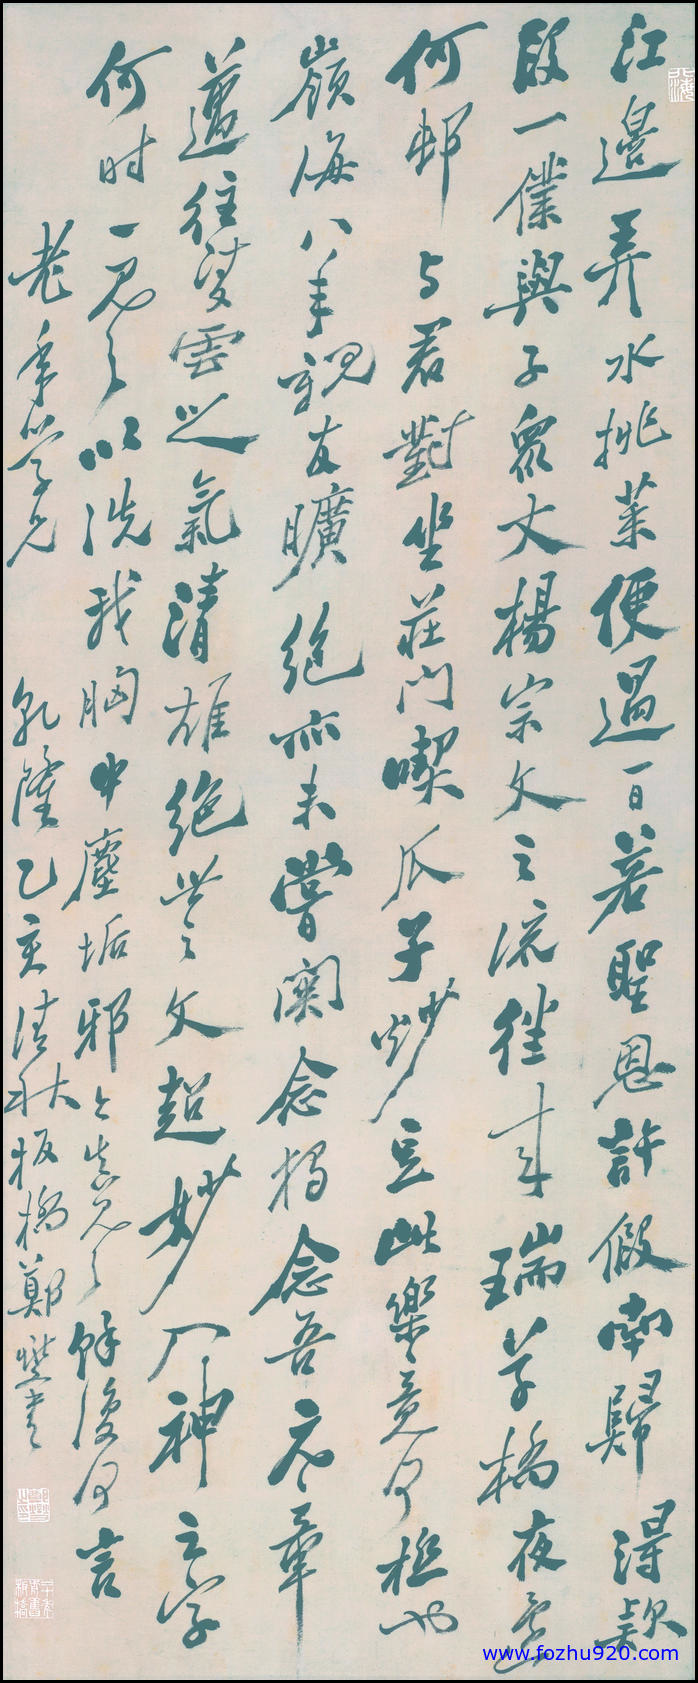 江邊弄水挑菜便過一日若聖恩許假南歸得款
段一僕與子衆丈楊宗文之流往來瑞草橋夜還
何邨与君對坐莊門喫瓜子炒豆此樂竟何極也
嶺海八年親友曠絕亦未嘗關念獨念吾元章
邁往凌雲之氣清雄絕世之文超妙入神之字
何時一見之以洗我胸中塵垢邪今真見之餘復何言
老年學兄
乾隆乙亥清秋板橋鄭燮書
www.fozhu920.com